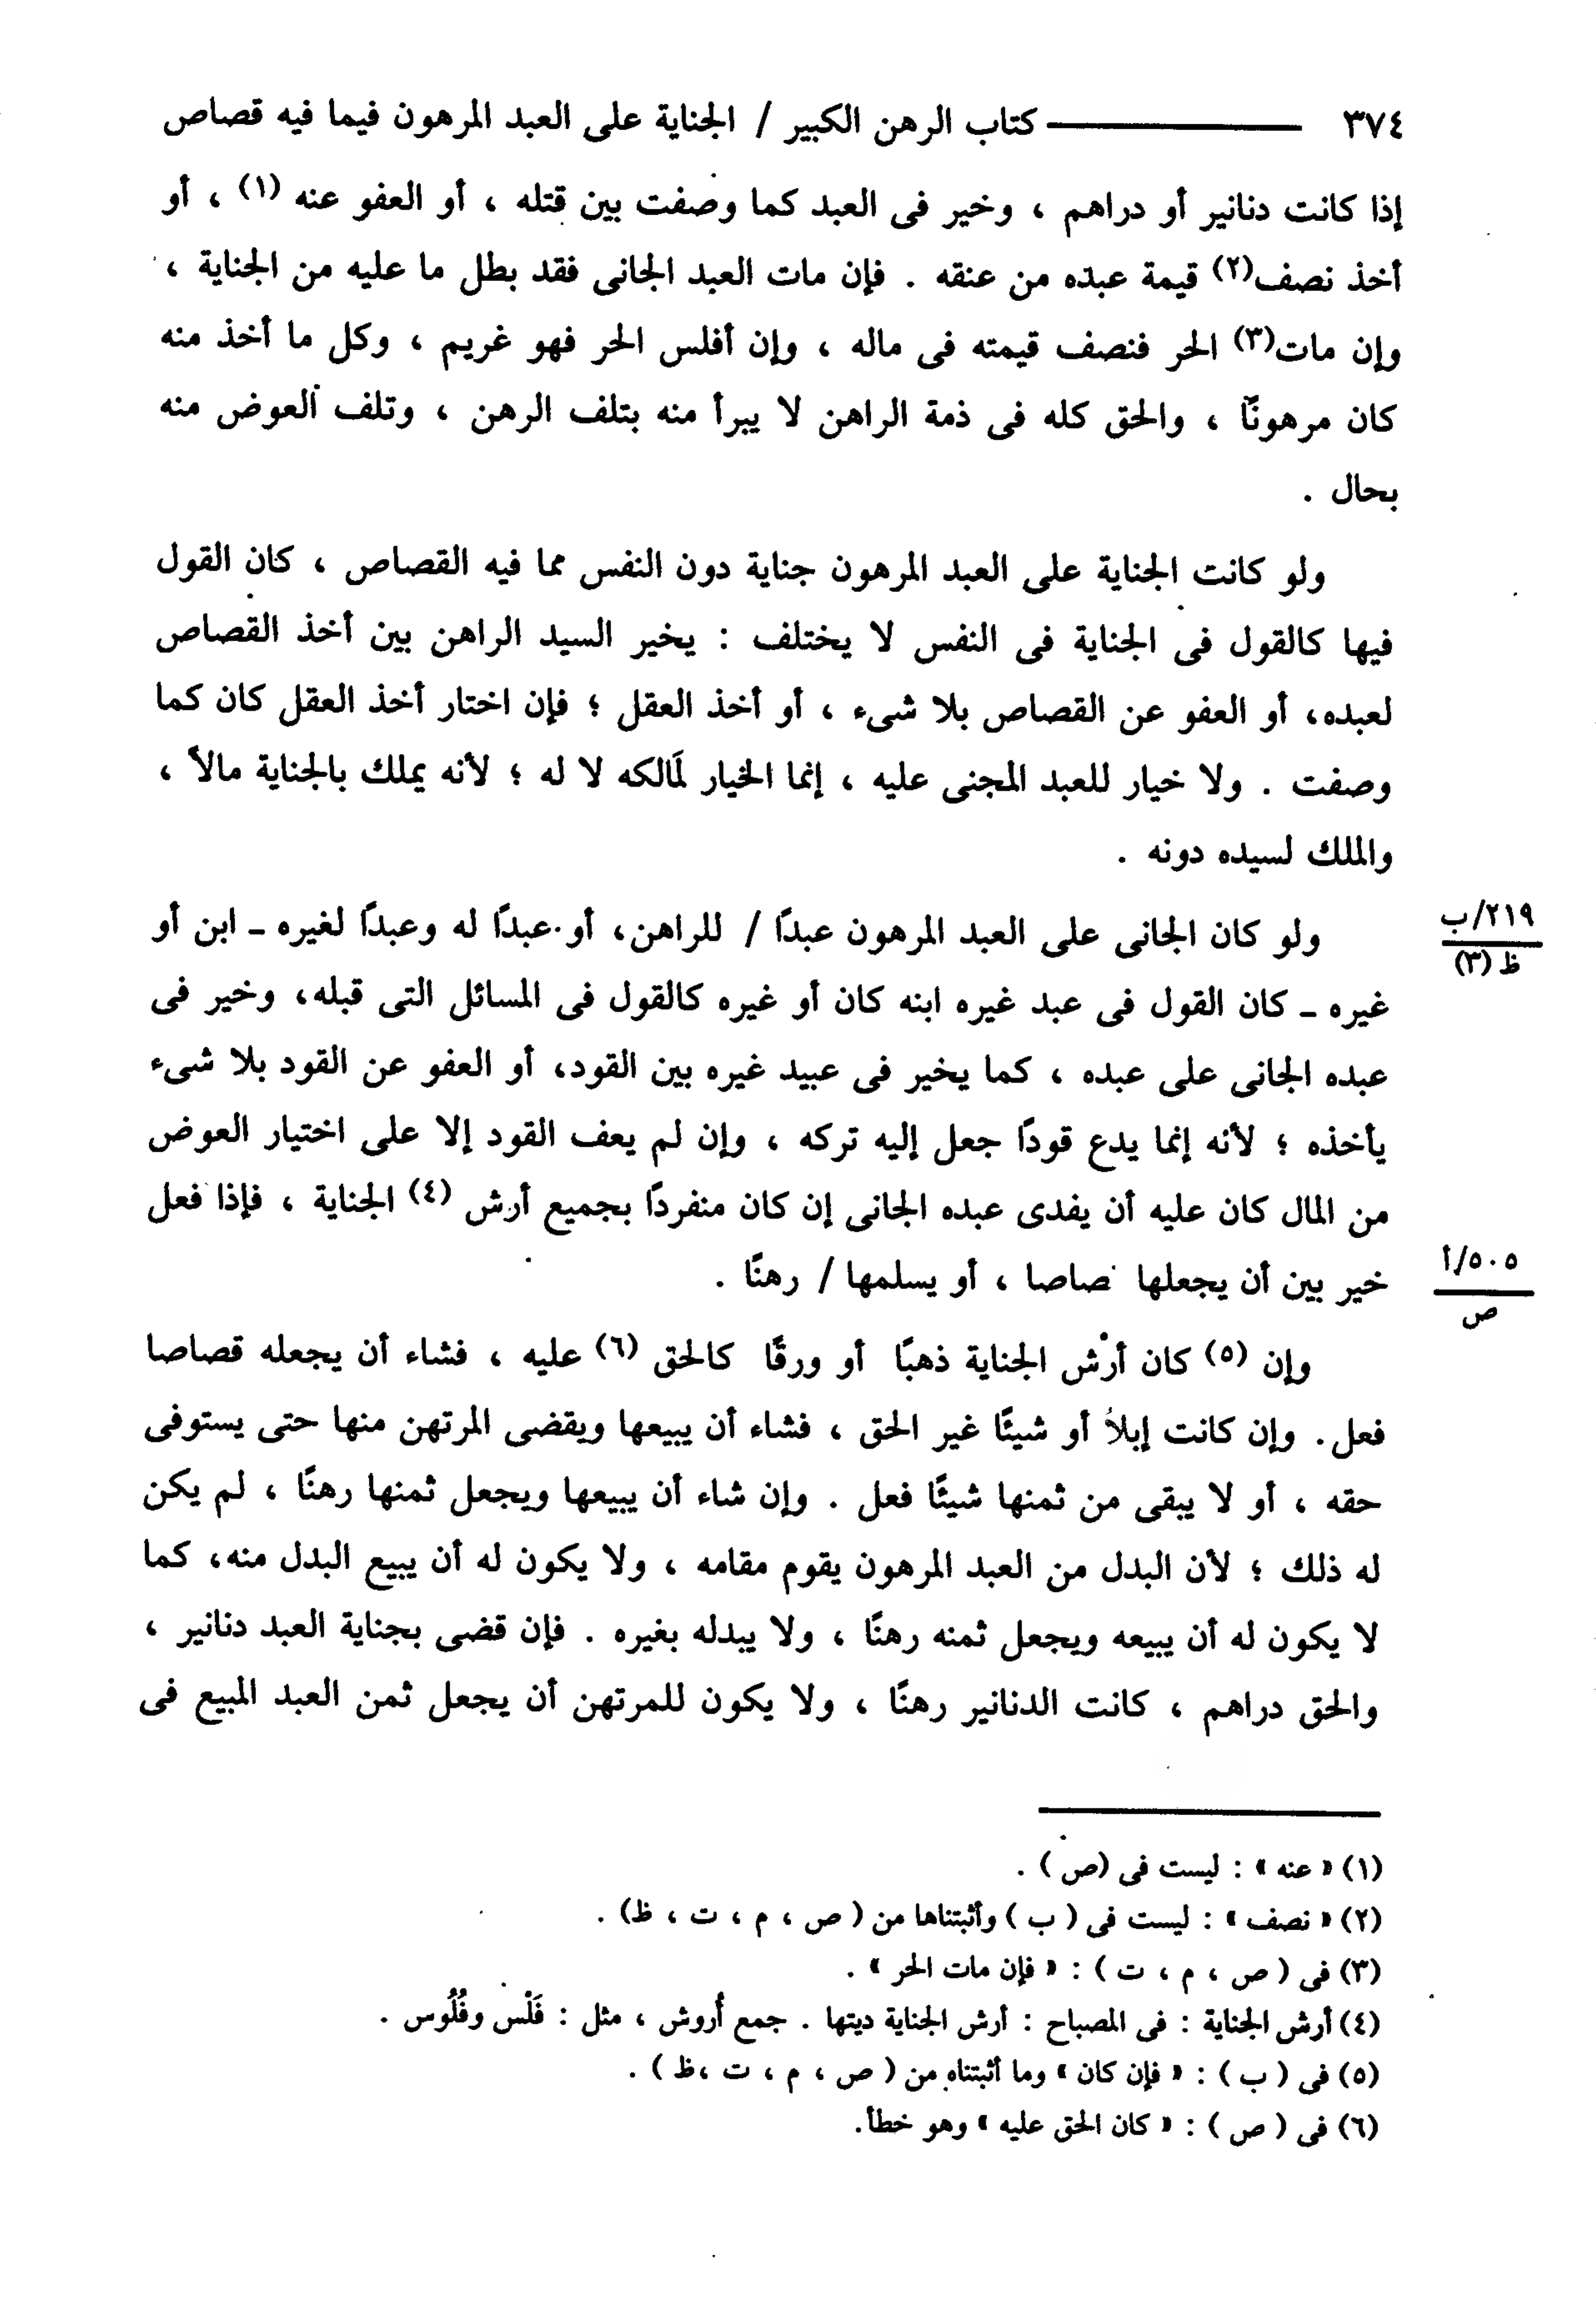 ٣٧٤ ــــــــــــ كتاب الرهن الكبير / الجناية على العبد المرهون فيما فيه قصاص
إذا كانت دنانير أو دراهم ، وخير فى العبد كما وصفت بين قتله ، أو العفو عنه (١) ، أو
أخذ نصف(٢) قيمة عبده من عنقه . فإن مات العبد الجانى فقد بطل ما عليه من الجناية ،
وإن مات(٣) الحر فنصف قيمته فى ماله ، وإن أفلس الحر فهو غريم ، وكل ما أخذ منه
كان مرهونًا ، والحق كله فى ذمة الراهن لا يبرأ منه بتلف الرهن ، وتلف العوض منه
بحال .
ولو كانت الجناية على العبد المرهون جناية دون النفس مما فيه القصاص ، كان القول
فيها كالقول فى الجناية فى النفس لا يختلف : يخير السيد الراهن بين أخذ القصاص
لعبده، أو العفو عن القصاص بلا شىء ، أو أخذ العقل ؛ فإن اختار أخذ العقل كان كما
وصفت . ولا خيار للعبد المجنى عليه ، إنما الخيار لمَالكه لا له ؛ لأنه يملك بالجناية مالاً ،
والملك لسيده دونه .
ولو كان الجانى على العبد المرهون عبدًا / للراهن، أو عبدًا له وعبدًا لغيره ـ ابن أو
٢١٩/ب
ظ (٣)
غيره ـ كان القول فى عبد غيره ابنه كان أو غيره كالقول فى المسائل التى قبله، وخير فى
عبده الجانى على عبده ، كما يخير فى عبيد غيره بين القود، أو العفو عن القود بلا شىء
يأخذه ؛ لأنه إنما يدع قودًا جعل إليه تركه ، وإن لم يعف القود إلا على اختيار العوض
من المال كان عليه أن يفدى عبده الجانى إن كان منفردًا بجميع أرش (٤) الجناية ، فإذا فعل
خير بين أن يجعلها صاصا ، أو يسلمها / رهنًا .
٥٠٥/أ
ص
وإن (٥) كان أرْش الجناية ذهبًا أو ورقًا كالحق (٦) عليه ، فشاء أن يجعله قصاصا
فعل. وإن كانت إبلاً أو شيئًا غير الحق ، فشاء أن يبيعها ويقضى المرتهن منها حتى يستوفى
حقه ، أو لا يبقى من ثمنها شيئًا فعل . وإن شاء أن يبيعها ويجعل ثمنها رهنًا ، لم يكن
له ذلك ؛ لأن البدل من العبد المرهون يقوم مقامه ، ولا يكون له أن يبيع البدل منه، كما
لا يكون له أن يبيعه ويجعل ثمنه رهنًا ، ولا يبدله بغيره . فإن قضى بجناية العبد دنانير ،
والحق دراهم ، كانت الدنانير رهنًا ، ولا يكون للمرتهن أن يجعل ثمن العبد المبيع فى
(١) « عنه » : ليست فى (ص) .
(٢) « نصف » : ليست فى ( ب ) وأثبتناها من ( ص ، م ، ت ، ظ) .
(٣) فى ( ص ، م ، ت ) : « فإن مات الحر » .
(٤) أرش الجناية : فى المصباح : أرش الجناية ديتها . جمع أُروش ، مثل : فَلْس وفُلُوس .
(٥) فى ( ب ) : « فإن كان » وما أثبتناه من ( ص ، م ، ت ،ظ ) .
(٦) فى ( ص ) : « كان الحق عليه » وهو خطأ.